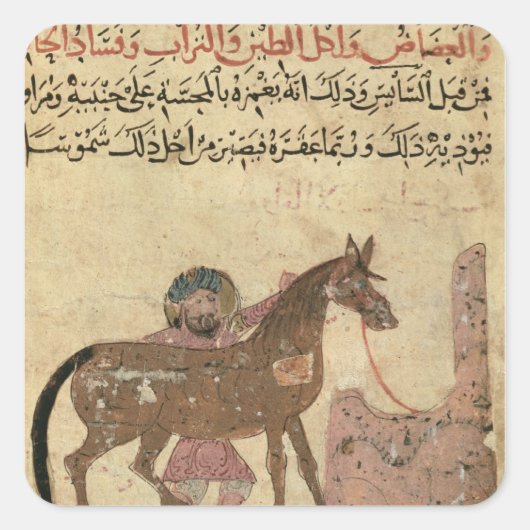 والعضاض واجل الطين والتراب وفساد الحا
فمن قبل السايس وذلك انه يغمزه بالمجسه على جنبيه ومراو
فيوذيه ذلك وربما عقره فيصير من اجل ذلك شموسا